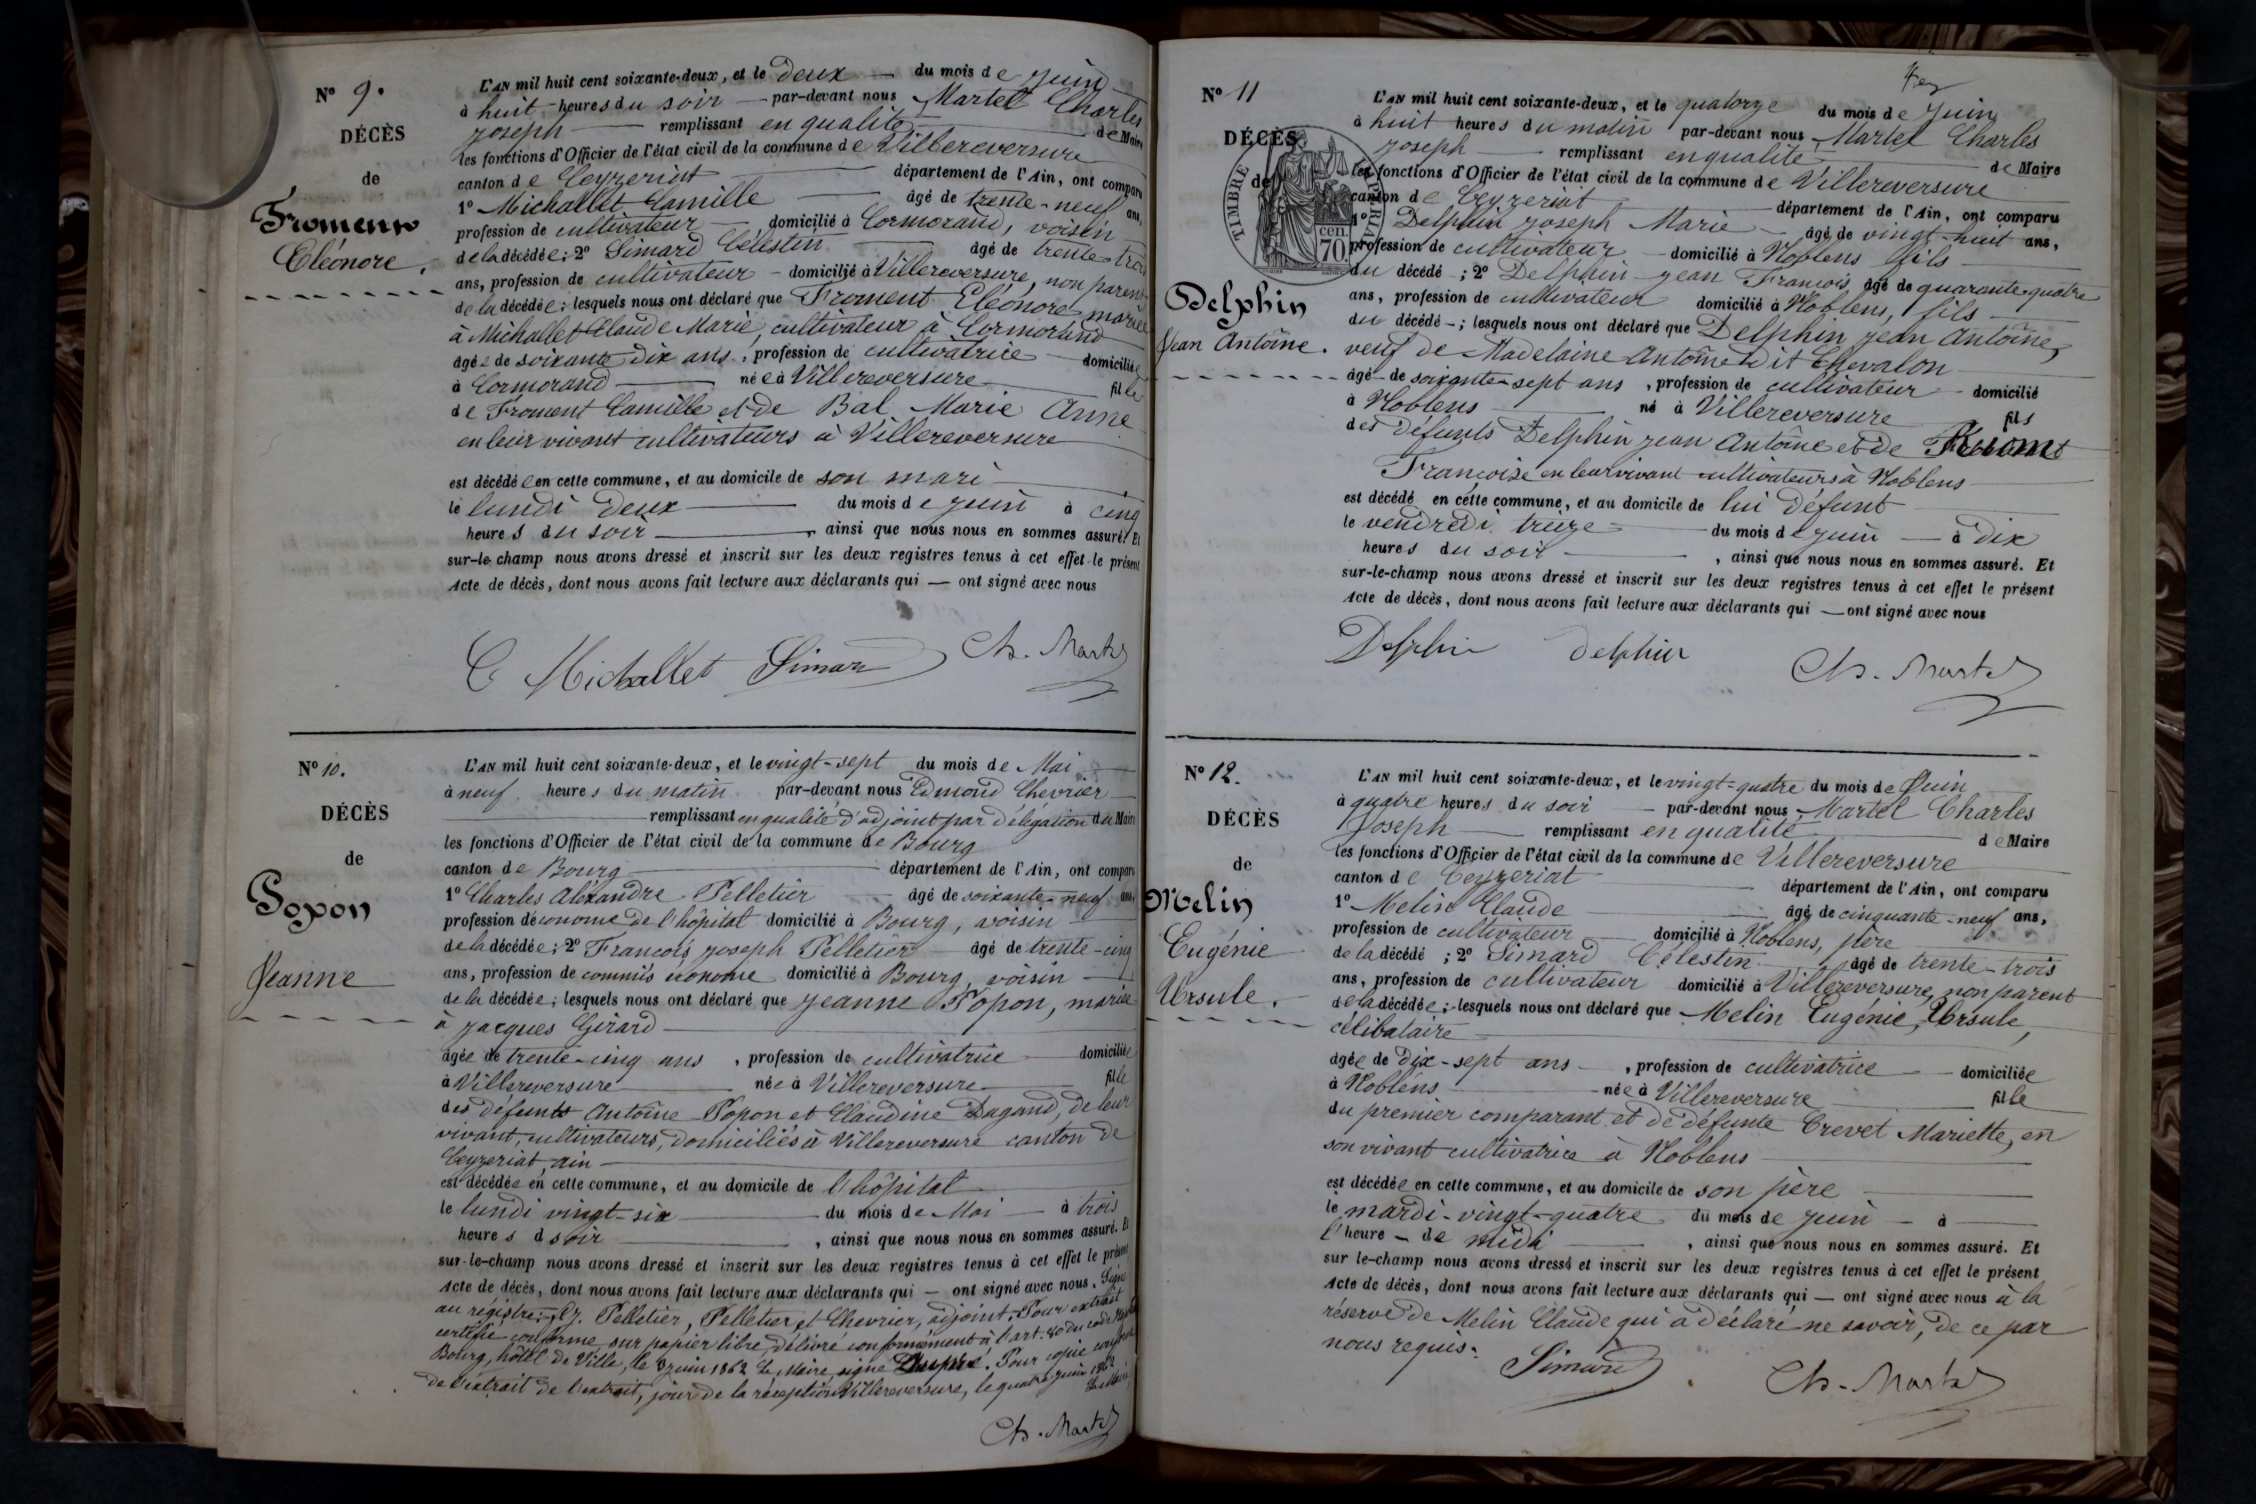 N° 9.
DÉCÈS
de
Froment
Eléonore.
L'AN mil huit cent soixante-deux, et le deux du mois de juin
à huit heures du soir par-devant nous Martel Charles
Joseph remplissant en qualité de Maire
les fonctions d'Officier de l'état civil de la commune de Villereversure
canton de Ceyzeriat département de l'Ain, ont comparu
1° Michallet Camille âgé de trente-neuf ans,
profession de cultivateur domicilié à Cormorand, voisin
de la décédée; 2° Simard Célestin âgé de trente-trois
ans, profession de cultivateur domicilié à Villereversure, non parent
de la décédée; lesquels nous ont déclaré que Froment Eléonore mariée
à Michallet Claude Marie, cultivateur à Cormorand
âgée de soixante-dix ans, profession de cultivatrice domiciliée
à Cormorand née à Villereversure fille
de Froment Camille et de Bal Marie Anne
en leur vivant cultivateurs à Villereversure
est décédée en cette commune, et au domicile de son mari
le lundi deux du mois de juin à cinq
heures du soir, ainsi que nous nous en sommes assuré. Et
sur-le-champ nous avons dressé et inscrit sur les deux registres tenus à cet effet le présent
Acte de décès, dont nous avons fait lecture aux déclarants qui — ont signé avec nous
C Michallet Simard Ch. Martel
N° 10.
DÉCÈS
de
Popon
Jeanne
L'AN mil huit cent soixante-deux, et le vingt-sept du mois de Mai
à neuf heures du matin par-devant nous Edmond Chevrier
remplissant en qualité d'adjoint par délégation du Maire
les fonctions d'Officier de l'état civil de la commune de Bourg
canton de Bourg département de l'Ain, ont comparu
1° Charles Alexandre Pelletier âgé de soixante-neuf ans,
profession d'économe de l'hôpital domicilié à Bourg, voisin
de la décédée; 2° François Joseph Pelletier âgé de trente-cinq
ans, profession de commis économe domicilié à Bourg, voisin
de la décédée; lesquels nous ont déclaré que Jeanne Popon, mariée
à Jacques Girard
âgée de trente-cinq ans, profession de cultivatrice domiciliée
à Villereversure née à Villereversure fille
des défunts Antoine Popon et Claudine Dagand, de leur
vivant, cultivateurs, domiciliés à Villereversure canton de
Ceyzeriat, ain
est décédée en cette commune, et au domicile de l'hôpital
le lundi vingt-six du mois de Mai à trois
heures d soir, ainsi que nous nous en sommes assuré. Et
sur-le-champ nous avons dressé et inscrit sur les deux registres tenus à cet effet le présent
Acte de décès, dont nous avons fait lecture aux déclarants qui — ont signé avec nous. Signé
au régistre: Pelletier, Pelletier et Chevrier, adjoint. Pour extrait
certifié conforme, sur papier libre, délivré conformément à l'art. 80 du code
Bourg, hôtel de Ville, le juin 1862 Le Maire, signé Pour copie conforme
de l'extrait de l'extrait, jour de la réception Villereversure, le quatre juin 1862
Le Maire,
Ch. Martel
N° 11
DÉCÈS
de
TIMBRE IMPERIAL
70 cen.
Delphin
Jean Antoine.
L'AN mil huit cent soixante-deux, et le quatorze du mois de Juin
à huit heures du matin par-devant nous Martel Charles
Joseph remplissant en qualité de Maire
les fonctions d'Officier de l'état civil de la commune de Villereversure
canton de Ceyzeriat département de l'Ain, ont comparu
1° Delphin Joseph Marie âgé de vingt-huit ans,
profession de cultivateur domicilié à Noblens fils
du décédé; 2° Delphin Jean François âgé de quarante-quatre
ans, profession de cultivateur domicilié à Noblens, fils
du décédé; lesquels nous ont déclaré que Delphin Jean Antoine,
veuf de Madelaine Antoinette dit Chevalon
âgé de soixante-sept ans, profession de cultivateur domicilié
à Noblens né à Villereversure fils
des défunts Delphin Jean Antoine et de
Françoise en leur vivant cultivateurs à Noblens
est décédé en cette commune, et au domicile de lui défunt
le vendredi treize du mois de juin à dix
heures du soir, ainsi que nous nous en sommes assuré. Et
sur-le-champ nous avons dressé et inscrit sur les deux registres tenus à cet effet le présent
Acte de décès, dont nous avons fait lecture aux déclarants qui — ont signé avec nous
Delphin Delphin Ch. Martel
N° 12.
DÉCÈS
de
Melin
Eugénie
Ursule.
L'AN mil huit cent soixante-deux, et le vingt-quatre du mois de Juin
à quatre heures du soir par-devant nous Martel Charles
Joseph remplissant en qualité de Maire
les fonctions d'Officier de l'état civil de la commune de Villereversure
canton de Ceyzeriat département de l'Ain, ont comparu
1° Melin Claude âgé de cinquante-neuf ans,
profession de cultivateur domicilié à Noblens, père
de la décédé; 2° Simard Célestin âgé de trente-trois
ans, profession de cultivateur domicilié à Villereversure, non parent
de la décédée; lesquels nous ont déclaré que Melin Eugénie, Ursule,
célibataire
âgée de dix-sept ans, profession de cultivatrice domiciliée
à Noblens née à Villereversure fille
du premier comparant et de défunte Crevet Mariette, en
son vivant cultivatrice à Noblens
est décédée en cette commune, et au domicile de son père
le mardi vingt-quatre du mois de juin à
l'heure de midi, ainsi que nous nous en sommes assuré. Et
sur le-champ nous avons dressé et inscrit sur les deux registres tenus à cet effet le présent
Acte de décès, dont nous avons fait lecture aux déclarants qui — ont signé avec nous à la
réserve de Melin Claude qui a déclaré ne savoir, de ce par
nous requis.
Simard Ch. Martel